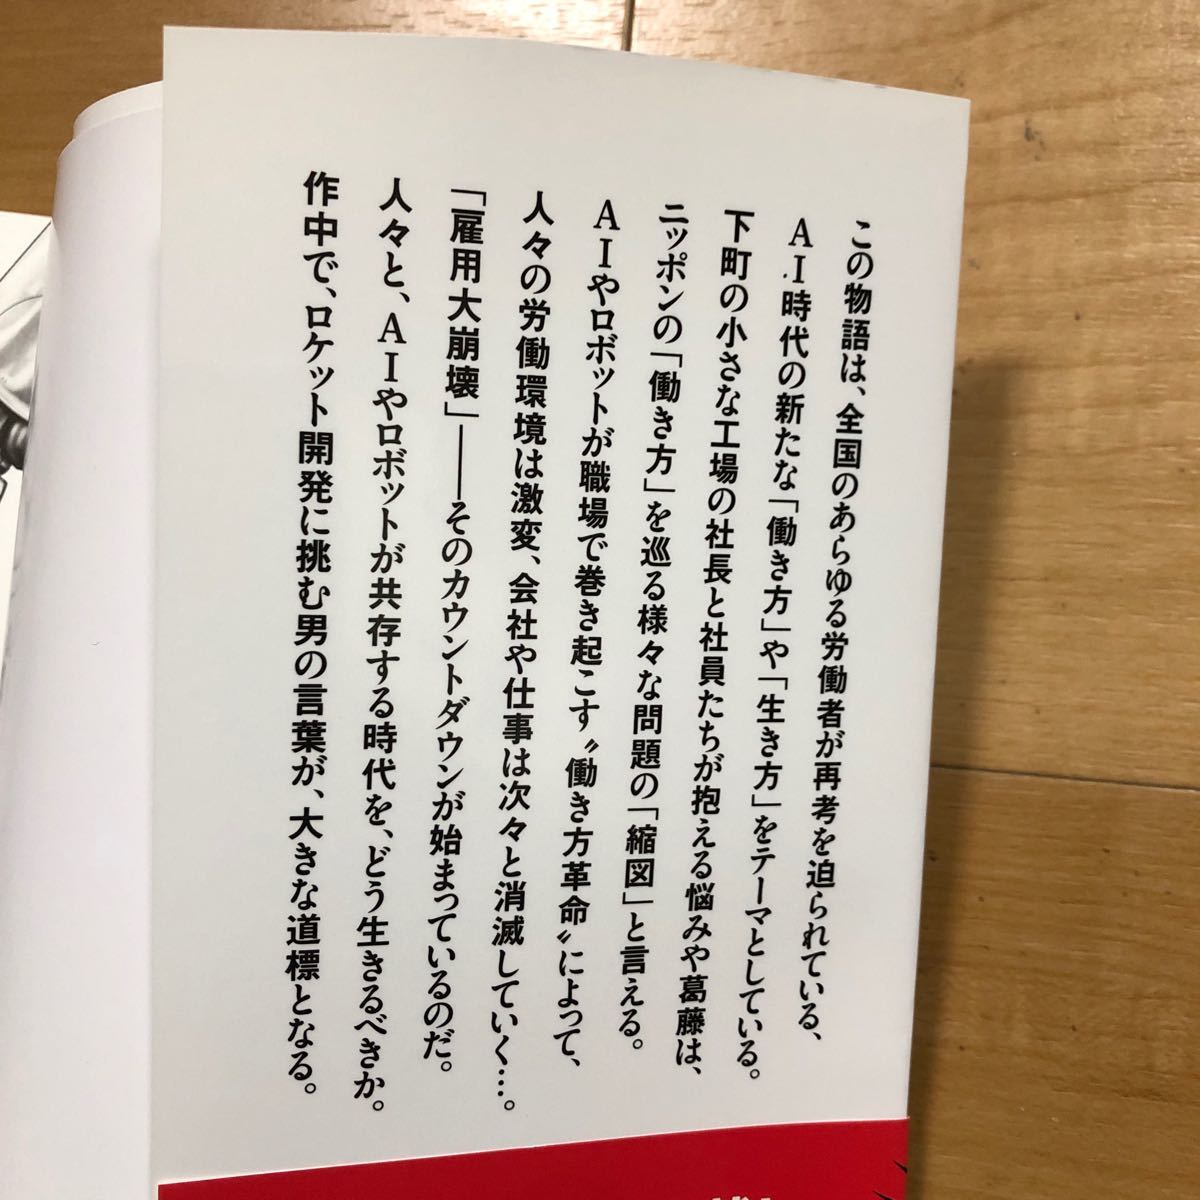 この物語は、全国のあらゆる労働者が再考を迫られている、
AI時代の新たな「働き方」や「生き方」をテーマとしている。
下町の小さな工場の社長と社員たちが抱える悩みや葛藤は、
ニッポンの「働き方」を巡る様々な問題の「縮図」と言える。
AIやロボットが職場で巻き起こす〝働き方革命〟によって、
人々の労働環境は激変、会社や仕事は次々と消滅していく…。
「雇用大崩壊」――そのカウントダウンが始まっているのだ。
人々と、AIやロボットが共存する時代を、どう生きるべきか。
作中で、ロケット開発に挑む男の言葉が、大きな道標となる。